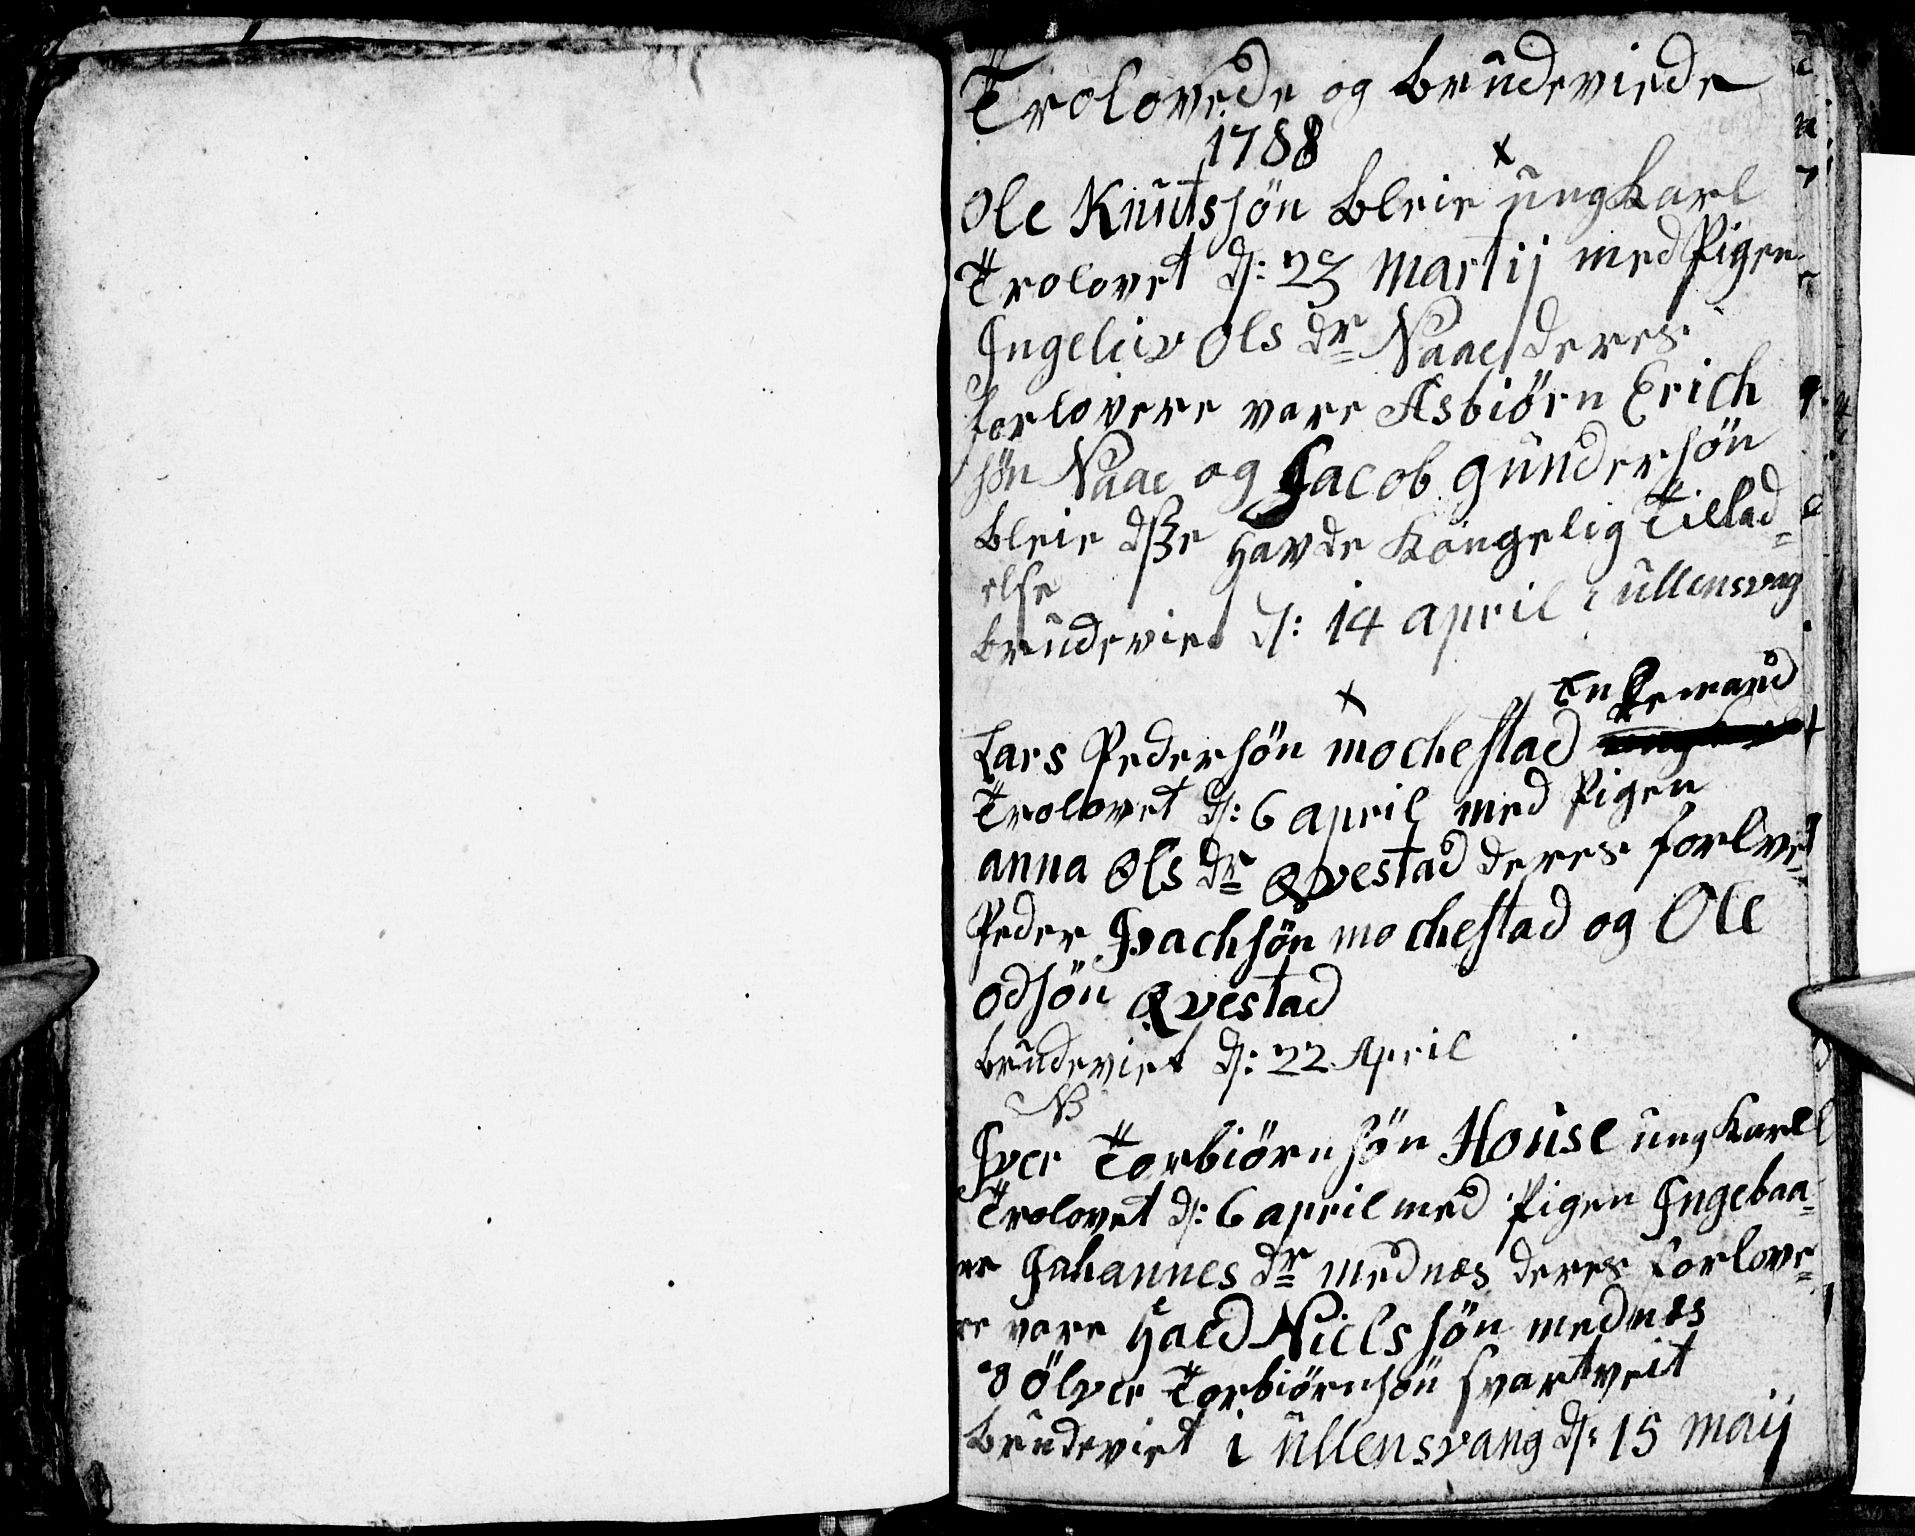 Trolovede og brudeviede
1788
x
Ole Knutsøn Bleie ungkarl
Trolovet d: 23 Martij med Pigen
Ingeliiv Ols dr Naae deres
forlovere vare Asbiørn Erich
søn Naae og Jacob gundersøn
Bleie dße havde kongelig Tillad=
else
brudeviet d: 14 april i ullensvag
x
Enkemand
Lars Pedersøn mochestad
Trolovet d: 6 april med Pigen
anna Ols dr Qvestad deres forlve
Peder Ivachsøn mochestad og Ole
odsøn Qvestad
brudeviet d: 22 April
NB
Iver Torbiørnsøn House ungkarll
Trolovet d: 6 april med Pigen Ingebaa=
re Johannes dr mednæs deres forlove=
re vare Hald Nielssøn mednæs
og Ølver Torbiørnsøn Svartveit
brudeviet i ullensvang d: 15 maij